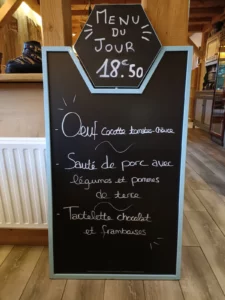 MENU
DU
JOUR
18€50
Oeuf Cocotte tomates-chèvre
- Sauté de porc avec
légumes et pommes
de terre
- Tartelette chocolat
et framboises